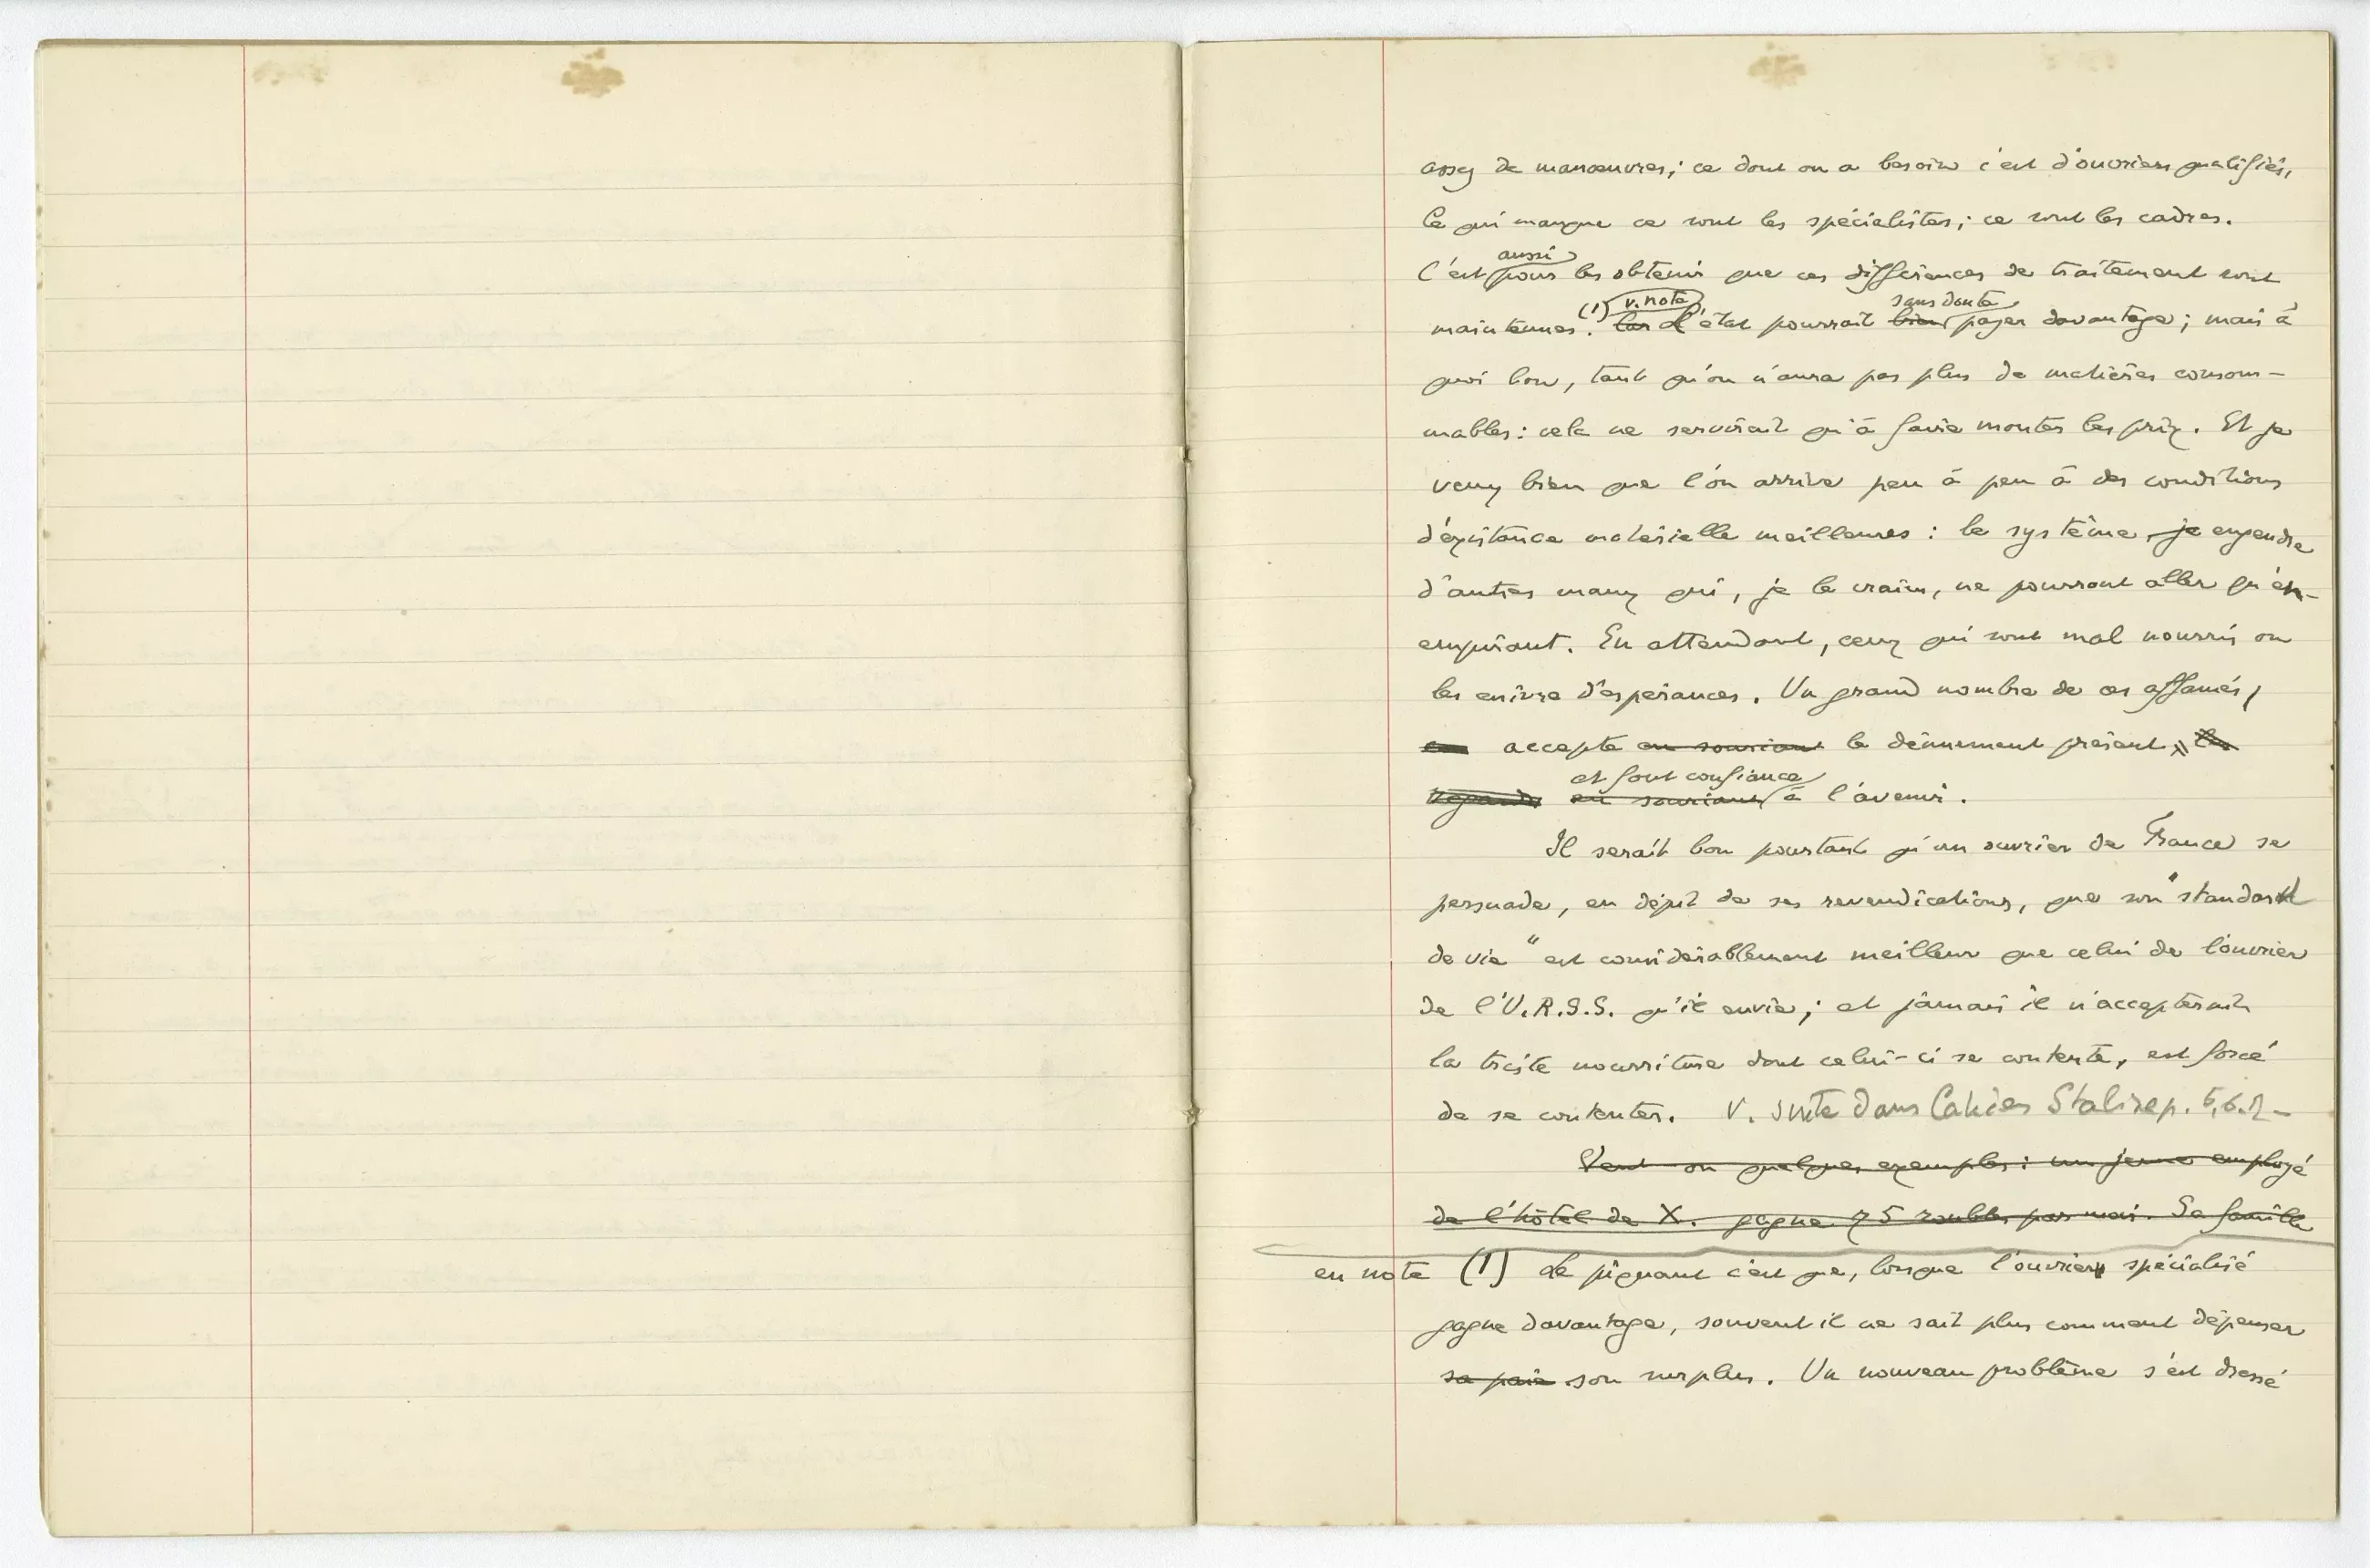 assez de manœuvres; ce dont on a besoin c'est d'ouvriers qualifiés,
Ce qui manque ce sont les spécialistes; ce sont les cadres.
aussi
C'est pour les obtenir que ces différences de traitement sont
(1) v. note sans doute
maintenues. Car L'état pourrait bien payer davantage; mais à
quoi bon, tant qu'on n'aura pas plus de matières consom-
mables: cela ne servirait qu'à faire monter les prix. Et je
veux bien que l'on arrive peu à peu à des conditions
d'existence matérielle meilleures: le système je engendre
d'autres maux qui, je le crains, ne pourront aller qu'en
empirant. En attendant, ceux qui sont mal nourris on
les enivre d'espérances. Un grand nombre de ces affamés,
accepte en souriant le dénuement présent,
et font confiance
regarde en souriant à l'avenir.
Il serait bon pourtant qu'un ouvrier de France se
persuade, en dépit de ses revendications, que son "standard
de vie" est considérablement meilleur que celui de l'ouvrier
de l'U.R.S.S. qu'il envie; et jamais il n'accepterait
la triste nourriture dont celui-ci se contente, est forcé
de se contenter. V. suite dans Cahier
Veut-on quelques exemples: un jeune employé
de l'hôtel de X. gagne 75 roubles par mois. Sa famille
en note (1) Le piquant c'est que, lorsque l'ouvrier spécialisé
gagne davantage, souvent il ne sait plus comment dépenser
sa paie son surplus. Un nouveau problème s'est dressé